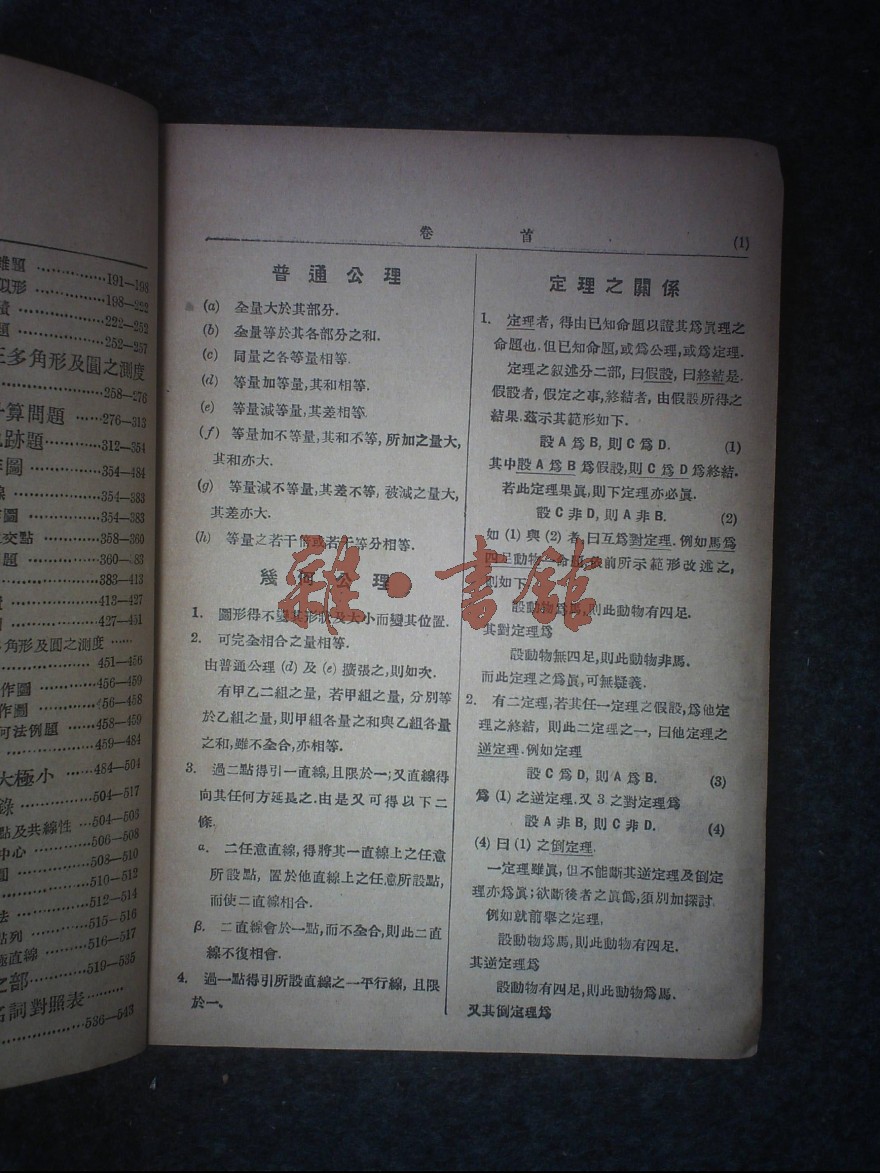 雜題 ……………191—198
似形 ……………198—222
積 ……………222—252
題 ……………252—257
正多角形及圓之測度
……………258—276
計算問題 ……276—313
軌跡題 …………312—354
作圖 ……………354—484
線 ……………354—383
作圖 ……………354—383
交點 ……………358—360
題 ……………360—383
……………383—413
積 ……………413—427
……………427—451
多角形及圓之測度 ……
……………451—456
作圖 ……………456—459
作圖 ……………456—458
何法例題 ………458—459
……………459—484
大極小 …………484—504
錄 ……………504—517
點及共線性 ……504—505
中心 ……………506—508
圓 ……………508—510
……………510—512
法 ……………512—514
點列 ……………515—516
極直線 …………516—517
之部 ……………519—535
名詞對照表 ………
……………536—543
卷 首 (1)
普通公理
(a) 全量大於其部分.
(b) 全量等於其各部分之和.
(c) 同量之各等量相等.
(d) 等量加等量,其和相等.
(e) 等量減等量,其差相等.
(f) 等量加不等量,其和不等,所加之量大,
其和亦大.
(g) 等量減不等量,其差不等,被減之量大,
其差亦大.
(h) 等量之若干倍或若干等分相等.
幾何公理
1. 圖形得不變其形狀及大小而變其位置.
2. 可完全相合之量相等.
由普通公理 (d) 及 (e) 擴張之,則如次.
有甲乙二組之量,若甲組之量,分別等
於乙組之量,則甲組各量之和與乙組各量
之和,雖不全合,亦相等.
3. 過二點得引一直線,且限於一;又直線得
向其任何方延長之.由是又可得以下二
條.
α. 二任意直線,得將其一直線上之任意
所設點,置於他直線上之任意所設點,
而使二直線相合.
β. 二直線會於一點,而不全合,則此二直
線不復相會.
4. 過一點得引所設直線之一平行線,且限
於一、
定理之關係
1. 定理者,得由已知命題以證其爲眞理之
命題也.但已知命題,或爲公理,或爲定理.
定理之敘述分二部,曰假設,曰終結是.
假設者,假定之事,終結者,由假設所得之
結果.茲示其範形如下.
設 A 爲 B, 則 C 爲 D. (1)
其中設 A 爲 B 爲假設,則 C 爲 D 爲終結.
若此定理果眞,則下定理亦必眞.
設 C 非 D, 則 A 非 B. (2)
如 (1) 與 (2) 者,曰互爲對定理.例如馬爲
四足動物一命題,依前所示範形改述之,
則如下.
設動物爲馬,則此動物有四足.
其對定理爲
設動物無四足,則此動物非馬.
而此定理之爲眞,可無疑義.
2. 有二定理,若其任一定理之假設,爲他定
理之終結,則此二定理之一,曰他定理之
逆定理.例如定理
設 C 爲 D, 則 A 爲 B. (3)
爲 (1) 之逆定理.又 3 之對定理爲
設 A 非 B, 則 C 非 D. (4)
(4) 曰 (1) 之倒定理.
一定理雖眞,但不能斷其逆定理及倒定
理亦爲眞;欲斷後者之眞僞,須別加探討.
例如就前舉之定理,
設動物爲馬,則此動物有四足.
其逆定理爲
設動物有四足,則此動物爲馬.
又其倒定理爲
雜·書館